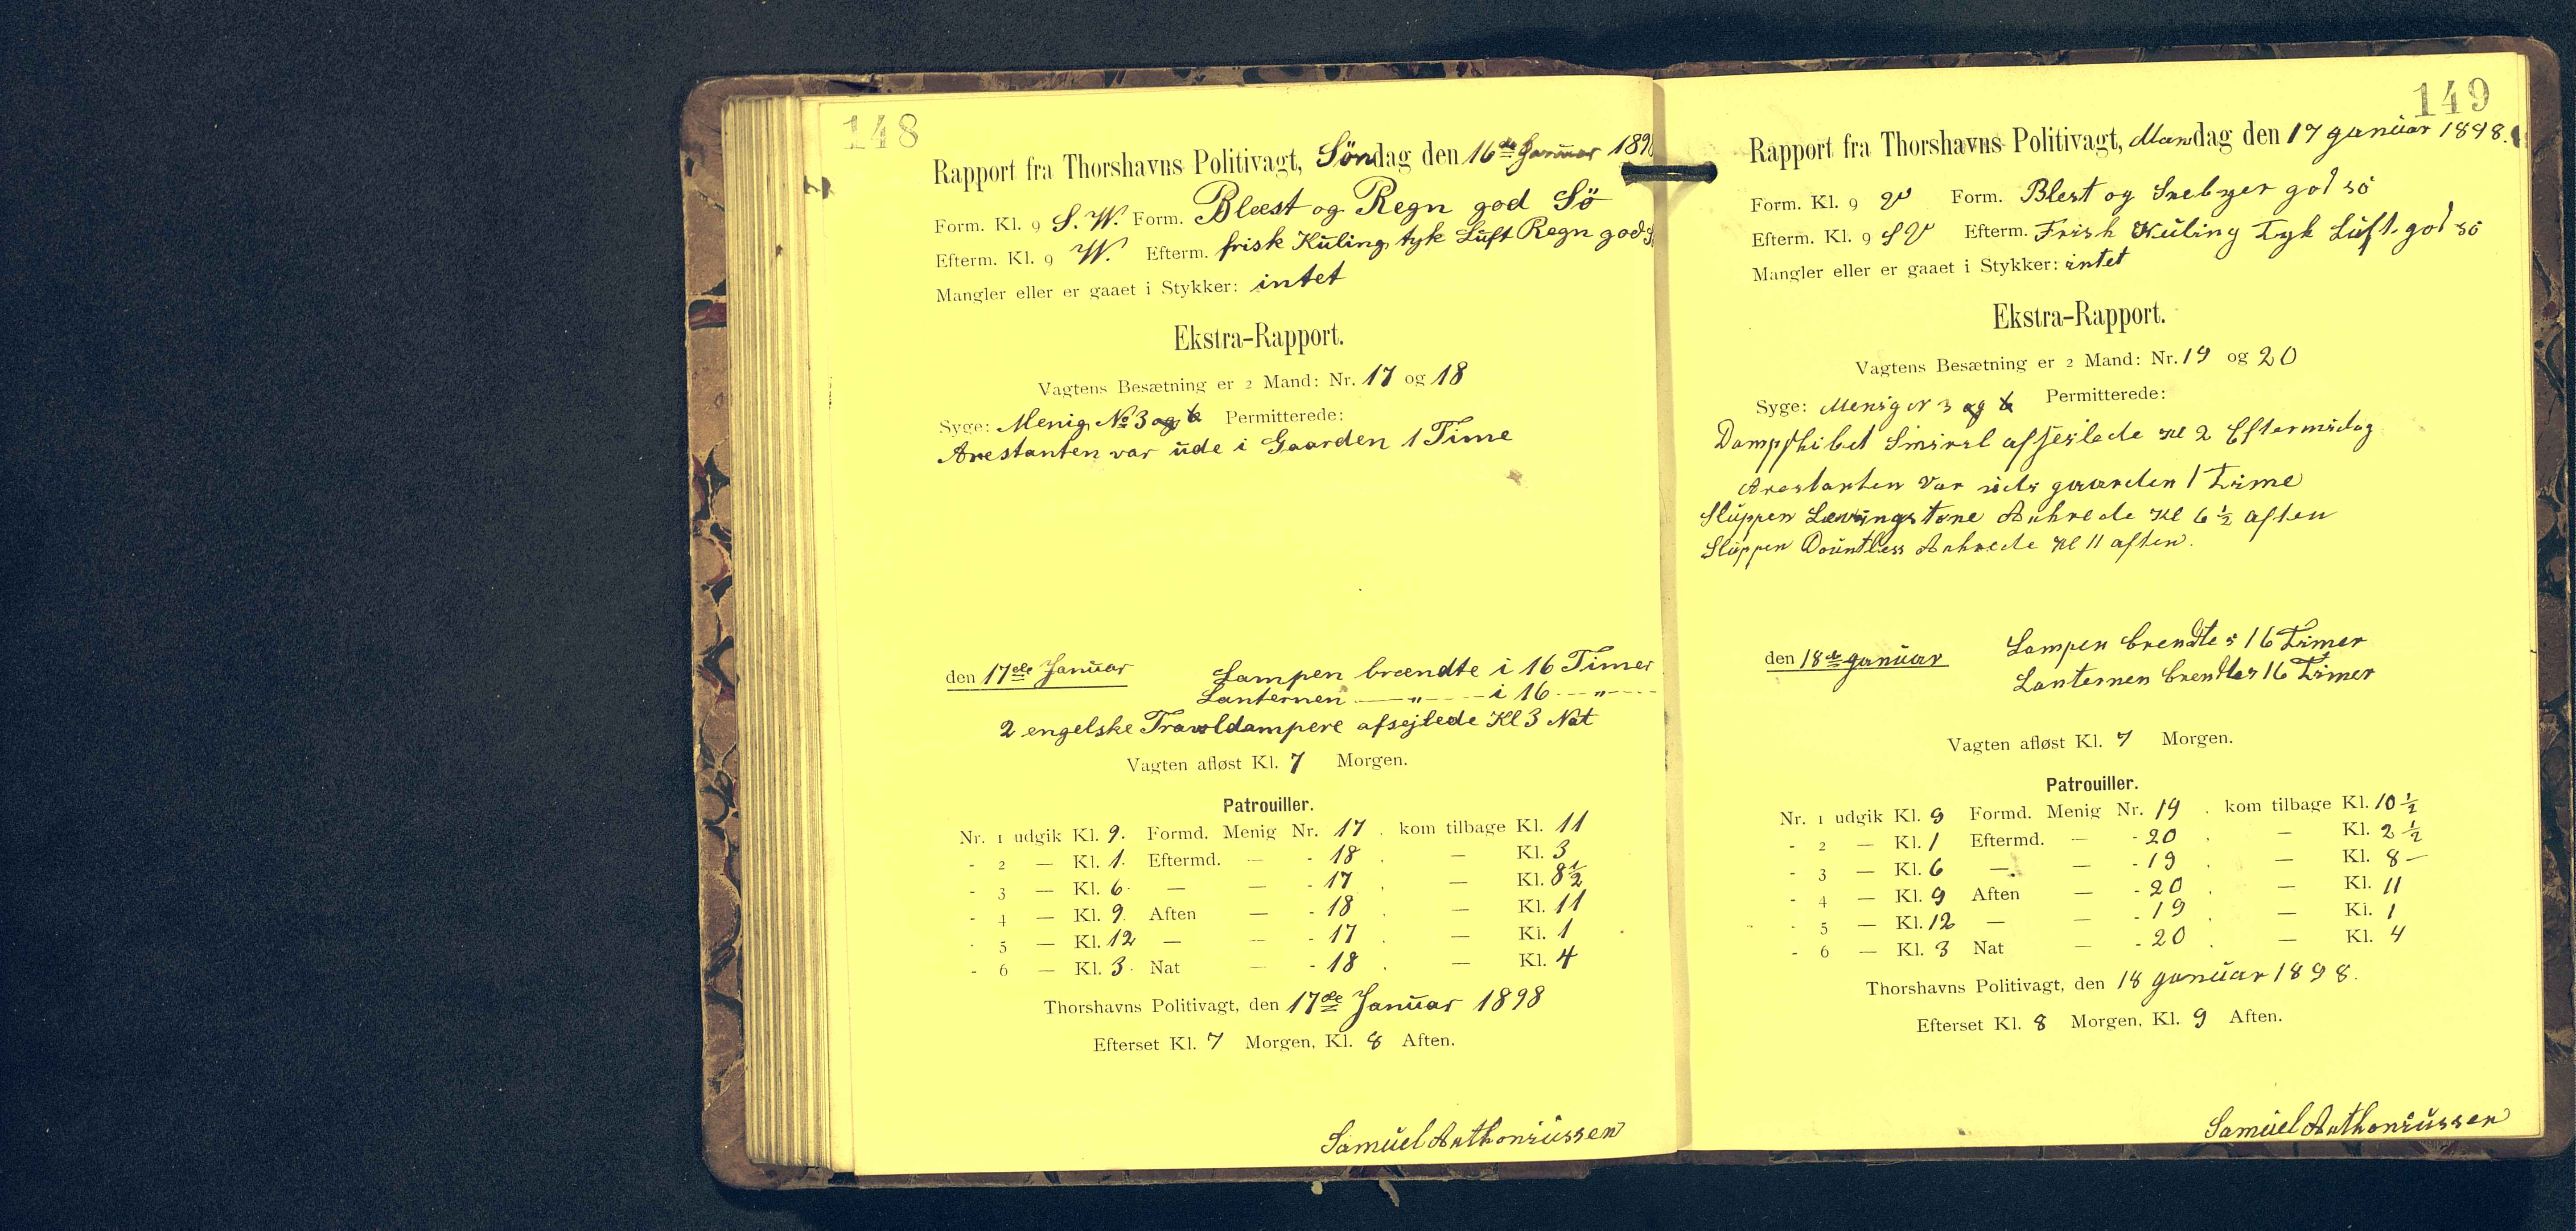 148
Rapport fra Thorshavns Politivagt, Søndag den 16de Januar 1898
Form. Kl. 9 S. W. Form. Blæst og Regn god Sö
Efterm. Kl. 9 W. Efterm. frisk Kuling tyk Luft Regn god S
Mangler eller er gaaet i Stykker: intet
Ekstra-Rapport.
Vagtens Besætning er 2 Mand: Nr. 17 og 18
Syge: Menig No 3 og 6 Permitterede:
Arestanten var ude i Gaarden 1 Time
den 17de Januar Lampen brændte i 16 Timer
Lanternen — „ — i 16 — „ —
2 engelske Trawldampere afsejlede Kl 3 Nat
Vagten afløst Kl. 7 Morgen.
Patrouiller.
Nr. 1 udgik Kl. 9. Formd. Menig Nr. 17 . kom tilbage Kl. 11
- 2 — Kl. 1. Eftermd. — - 18 . — Kl. 3
- 3 — Kl. 6. — — - 17 . — Kl. 8½
- 4 — Kl. 9. Aften — - 18 . — Kl. 11
- 5 — Kl. 12 — — - 17 . — Kl. 1
- 6 — Kl. 3. Nat — - 18 . — Kl. 4
Thorshavns Politivagt, den 17de Januar 1898
Efterset Kl. 7 Morgen, Kl. 8 Aften.
Samuel Anthoniussen
149
Rapport fra Thorshavns Politivagt, Mandag den 17 januar 1898.
Form. Kl. 9 V Form. Blest og Snebyer god sö
Efterm. Kl. 9 SV Efterm. Frisk Kuling Tyk Luft. god sö
Mangler eller er gaaet i Stykker: intet
Ekstra-Rapport.
Vagtens Besætning er 2 Mand: Nr. 19 og 20
Syge: Menig N 3 og 6 Permitterede:
Dampskibet Smiril afsejlede Kl 2 Eftermidag
Arestanten var gaarden 1 Time
Sluppen Lævingstone Ankrede Kl 6 ½ aften
Sluppen Dountless Ankrede Kl 11 aften.
den 18de januar Lampen brendte i 16 Timer
Lanternen brendte i 16 Timer
Vagten afløst Kl. 7 Morgen.
Patrouiller.
Nr. 1 udgik Kl. 9 Formd. Menig Nr. 19 . kom tilbage Kl. 10 ½
- 2 — Kl. 1 Eftermd. — - 20 . — Kl. 2 ½
- 3 — Kl. 6 — — - 19 . — Kl. 8 —
- 4 — Kl. 9 Aften — - 20 . — Kl. 11
- 5 — Kl. 12 — — - 19 . — Kl. 1
- 6 — Kl. 3 Nat — - 20 . — Kl. 4
Thorshavns Politivagt, den 18 januar 1898.
Efterset Kl. 8 Morgen, Kl. 9 Aften.
Samuel Anthoniussen